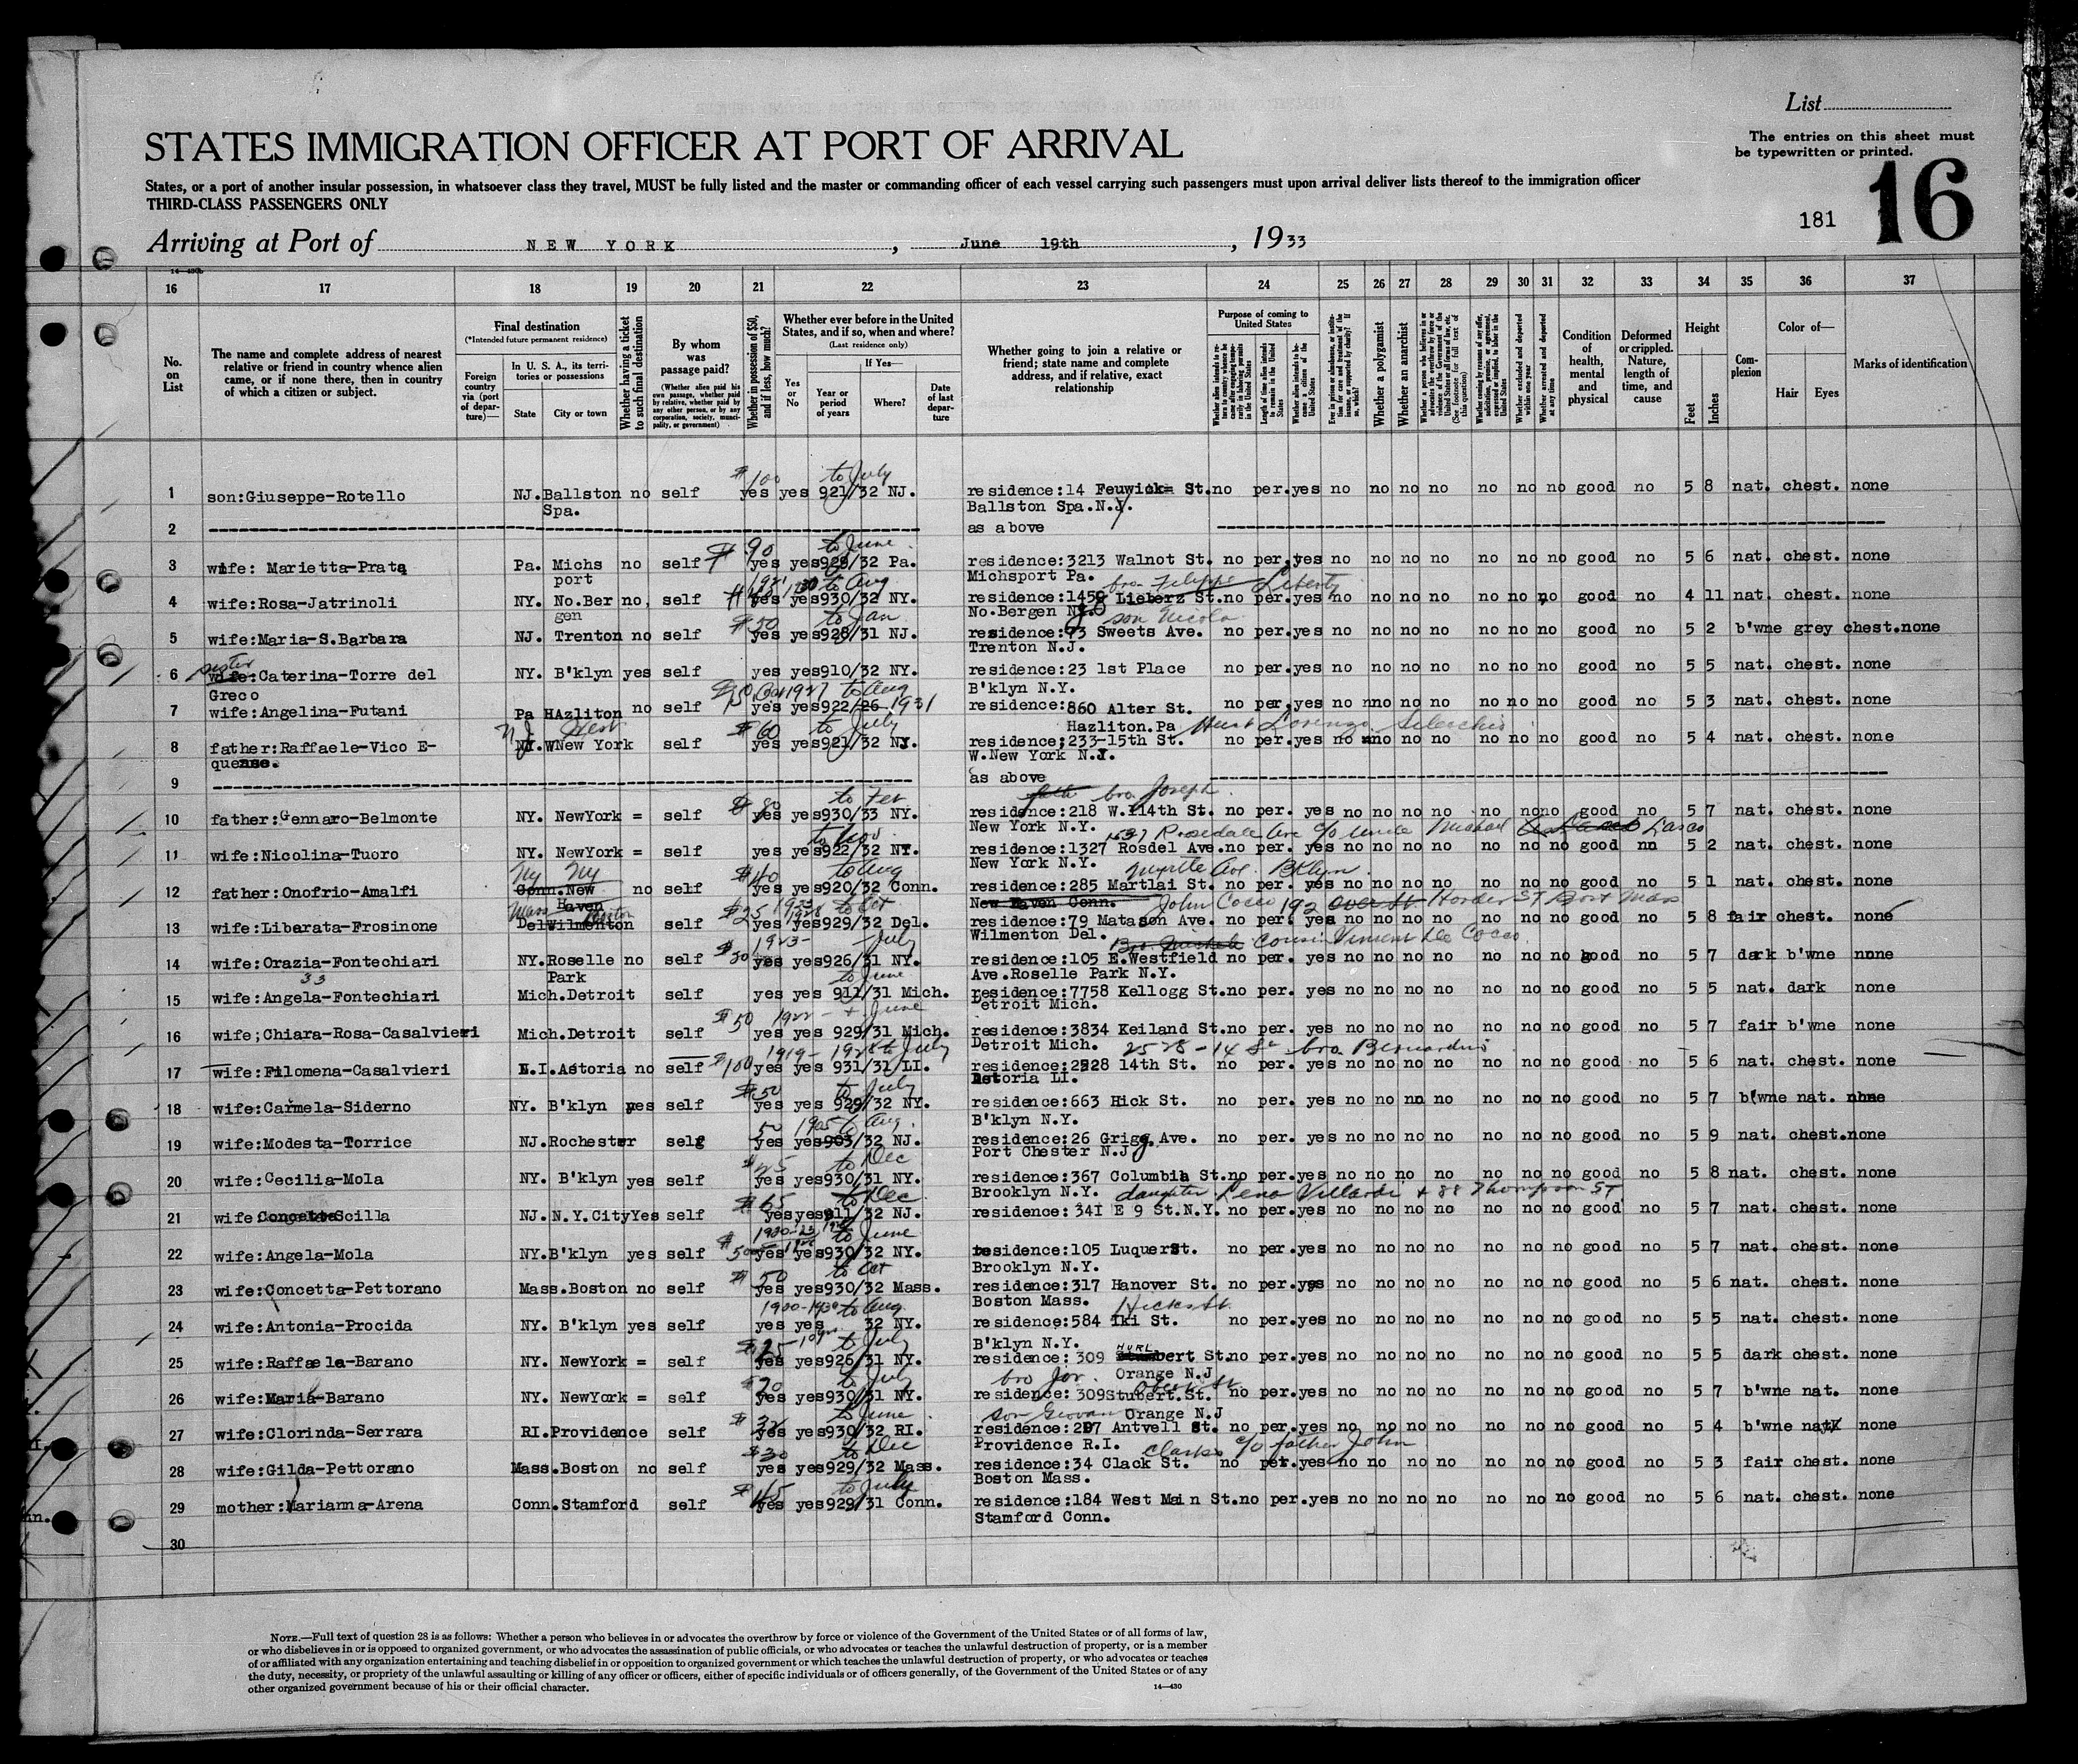 List
STATES IMMIGRATION OFFICER AT PORT OF ARRIVAL
The entries on this sheet must
be typewritten or printed.
States, or a port of another insular possession, in whatsoever class they travel, MUST be fully listed and the master or commanding officer of each vessel carrying such passengers must upon arrival deliver lists thereof to the immigration officer
THIRD-CLASS PASSENGERS ONLY
181 16
Arriving at Port of NEW YORK, June 19th, 1933
16 17 18 19 20 21 22 23 24 25 26 27 28 29 30 31 32 33 34 35 36 37
No. on List
The name and complete address of nearest relative or friend in country whence alien came, or if none there, then in country of which a citizen or subject.
Final destination
(*Intended future permanent residence)
Foreign country via (port of departure)—
In U. S. A., its territories or possessions
State City or town
Whether having a ticket to such final destination
By whom was passage paid?
(Whether alien paid his own passage, whether paid by relative, whether paid by any other person, or by any corporation, society, municipality, or government)
Whether in possession of $50, and if less, how much?
Whether ever before in the United States, and if so, when and where?
(Last residence only)
If Yes—
Yes or No
Year or period of years
Where?
Date of last departure
Whether going to join a relative or friend; state name and complete address, and if relative, exact relationship
Purpose of coming to United States
Length of time alien intends to remain in the United States
Whether alien intends to become a citizen of the United States
Whether a polygamist
Whether an anarchist
Whether excluded and deported within one year
Whether arrested and deported at any time
Condition of health, mental and physical
Deformed or crippled. Nature, length of time, and cause
Height
Feet Inches
Complexion
Color of—
Hair Eyes
Marks of identification
$100 to July
1 son:Giuseppe-Rotello NJ. Ballston no self yes yes 921/32 NJ. residence:14 Feuwick= St. no per. yes no no no no no no no good no 5 8 nat. chest. none
Spa. Ballston Spa.N.Y.
2 as above
$90 to June
3 wife: Marietta-Prata Pa. Michs no self yes yes 929/32 Pa. residence:3213 Walnot St. no per. yes no no no no no no no good no 5 6 nat. chest. none
port Michsport Pa.
to Aug Liberty
4 wife:Rosa-Jatrinoli NY. No.Ber no, self yes yes 930/32 NY. residence:1459 Lieberz St. no per. yes no no no no no no no good no 4 11 nat. chest. none
gen No.Bergen
$50 to Jan son Nicola
5 wife:Maria-S.Barbara NJ. Trenton no self yes yes 928/31 NJ. residence:73 Sweets Ave. no per. yes no no no no no no no good no 5 2 b'wne grey chest. none
Trenton N.J.
sister
6 wife:Caterina-Torre del NY. B'klyn yes self yes yes 910/32 NY. residence:23 1st Place no per. yes no no no no no no no good no 5 5 nat. chest. none
Greco B'klyn N.Y.
to Aug 1931
7 wife:Angelina-Futani Pa HAzliton no self yes yes 922/26 residence:860 Alter St. no per. yes no no no no no no no good no 5 3 nat. chest. none
Hazliton.Pa
NJ West $60 to July
8 father:Raffaele-Vico E- NY. WNew York self yes yes 921/32 NJ. residence:233-15th St. no per. yes no no no no no no no good no 5 4 nat. chest. none
quense. W.New York N.J.
9 as above
$80 to Feb bro Joseph
10 father:Gennaro-Belmonte NY. NewYork = self yes yes 930/33 NY. residence:218 W.114th St. no per. yes no no no no no no no good no 5 7 nat. chest. none
New York N.Y. Rosedale Ave c/o uncle Michael
11 wife:Nicolina-Tuoro NY. NewYork = self yes yes 922/32 NY. residence:1327 Rosdel Ave. no per. yes no no no no no no no good no 5 2 nat. chest. none
New York N.Y.
Ny Ny $40 to Aug Myrtle Ave. Bklyn
12 father:Onofrio-Amalfi Conn.New no self yes yes 920/32 Conn. residence:285 Martlai St. no per. yes no no no no no no no good no 5 1 nat. chest. none
Haven New Haven Conn.
Mass Boston $25 to Oct John Cocco 192
13 wife:Liberata-Frosinone Del Wilmenton self yes yes 929/32 Del. residence:79 Matason Ave. no per. yes no no no no no no no good no 5 8 fair chest. none
Wilmenton Del.
1923- July Cousin Vincent
14 wife:Orazia-Fontechiari NY. Roselle no self yes yes 926/31 NY. residence:105 E.Westfield no per. yes no no no no no no no good no 5 7 dark b'wne none
Park Ave.Roselle Park N.Y.
33 to June
15 wife:Angela-Fontechiari Mich.Detroit self yes yes 911/31 Mich. residence:7758 Kellogg St. no per. yes no no no no no no no good no 5 5 nat. dark none
Detroit Mich.
$50 1922- June
16 wife;Chiara-Rosa-Casalvieri Mich.Detroit self yes yes 929/31 Mich. residence:3834 Keiland St. no per. yes no no no no no no no good no 5 7 fair b'wne none
Detroit Mich.
$100 1919- to July 2528-14 St bro Bernardino
17 wife:Filomena-Casalvieri L.I.Astoria no self yes yes 931/31/LI. residence:2528 14th St. no per. yes no no no no no no no good no 5 6 nat. chest. none
Astoria LI.
$50 to July
18 wife:Carmela-Siderno NY. B'klyn yes self yes yes 929/32 NY. residence:663 Hick St. no per. yes no no no no no no no good no 5 7 b'wne nat. none
B'klyn N.Y.
50 1905 to Aug.
19 wife:Modesta-Torrice NJ. Rochester self yes yes 903/32 NJ. residence:26 Grigg Ave. no per. yes no no no no no no no good no 5 9 nat. chest. none
Port Chester N.J
$25 to Dec
20 wife:Cecilia-Mola NY. B'klyn yes self yes yes 930/31 NY. residence:367 Columbia St. no per. yes no no no no no no no good no 5 8 nat. chest. none
Brooklyn N.Y. daughter Lena Villardi 88 Thompson ST
$65 to Dec
21 wife:Concetta-Scilla NJ. N.Y.City Yes self yes yes 911/32 NJ. residence:341 E 9 St.N.Y. no per. yes no no no no no no no good no 5 7 nat. chest. none
to June
22 wife:Angela-Mola NY. B'klyn yes self yes yes 930/32 NY. residence:105 Luquer St. no per. yes no no no no no no no good no 5 7 nat. chest. none
Brooklyn N.Y.
$50 to Oct
23 wife:Concetta-Pettorano Mass.Boston no self yes yes 930/32 Mass. residence:317 Hanover St. no per. yes no no no no no no no good no 5 6 nat. chest. none
Boston Mass.
to Aug. Hicks St.
24 wife:Antonia-Procida NY. B'klyn yes self yes yes 32 NY. residence:584 Iki St. no per. yes no no no no no no no good no 5 5 nat. chest. none
B'klyn N.Y.
$25 to July HURL
25 wife:Raffaela-Barano NY. NewYork = self yes yes 926/31 NY. residence: 309 bert St. no per. yes no no no no no no no good no 5 5 dark chest. none
Orange N.J
to July bro Jos.
26 wife:Maria-Barano NY. NewYork = self yes yes 930/31 NY. residence: 309 Stubert.St. no per. yes no no no no no no no good no 5 7 b'wne nat. none
Orange N.J
$32 to June son Giovan
27 wife:Clorinda-Serrara RI.Providence self yes yes 930/32 RI. residence:297 Antvell St. no per. yes no no no no no no no good no 5 4 b'wne nat none
Providence R.I.
$30 to Dec Clarks c/o father John
28 wife:Gilda-Pettorano Mass.Boston no self yes yes 929/32 Mass. residence:34 Clack St. no per. yes no no no no no no no good no 5 3 fair chest. none
Boston Mass.
to July
29 mother:Marianna-Arena Conn.Stamford self yes yes 929/31 Conn. residence:184 West Main St. no per. yes no no no no no no no good no 5 6 nat. chest. none
Stamford Conn.
30
NOTE.—Full text of question 28 is as follows: Whether a person who believes in or advocates the overthrow by force or violence of the Government of the United States or of all forms of law,
or who disbelieves in or is opposed to organized government, or who advocates the assassination of public officials, or who advocates or teaches the unlawful destruction of property, or is a member
of or affiliated with any organization entertaining and teaching disbelief in or opposition to organized government or which teaches the unlawful destruction of property, or who advocates or teaches
the duty, necessity, or propriety of the unlawful assaulting or killing of any officer or officers, either of specific individuals or of officers generally, of the Government of the United States or of any
other organized government because of his or their official character.
14—430